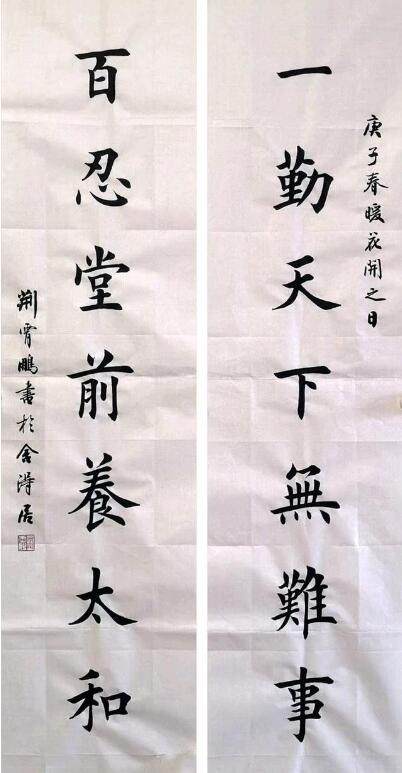 庚子春暖花開之日
一勤天下無難事
百忍堂前養太和
荆霄鵬書於舍得居